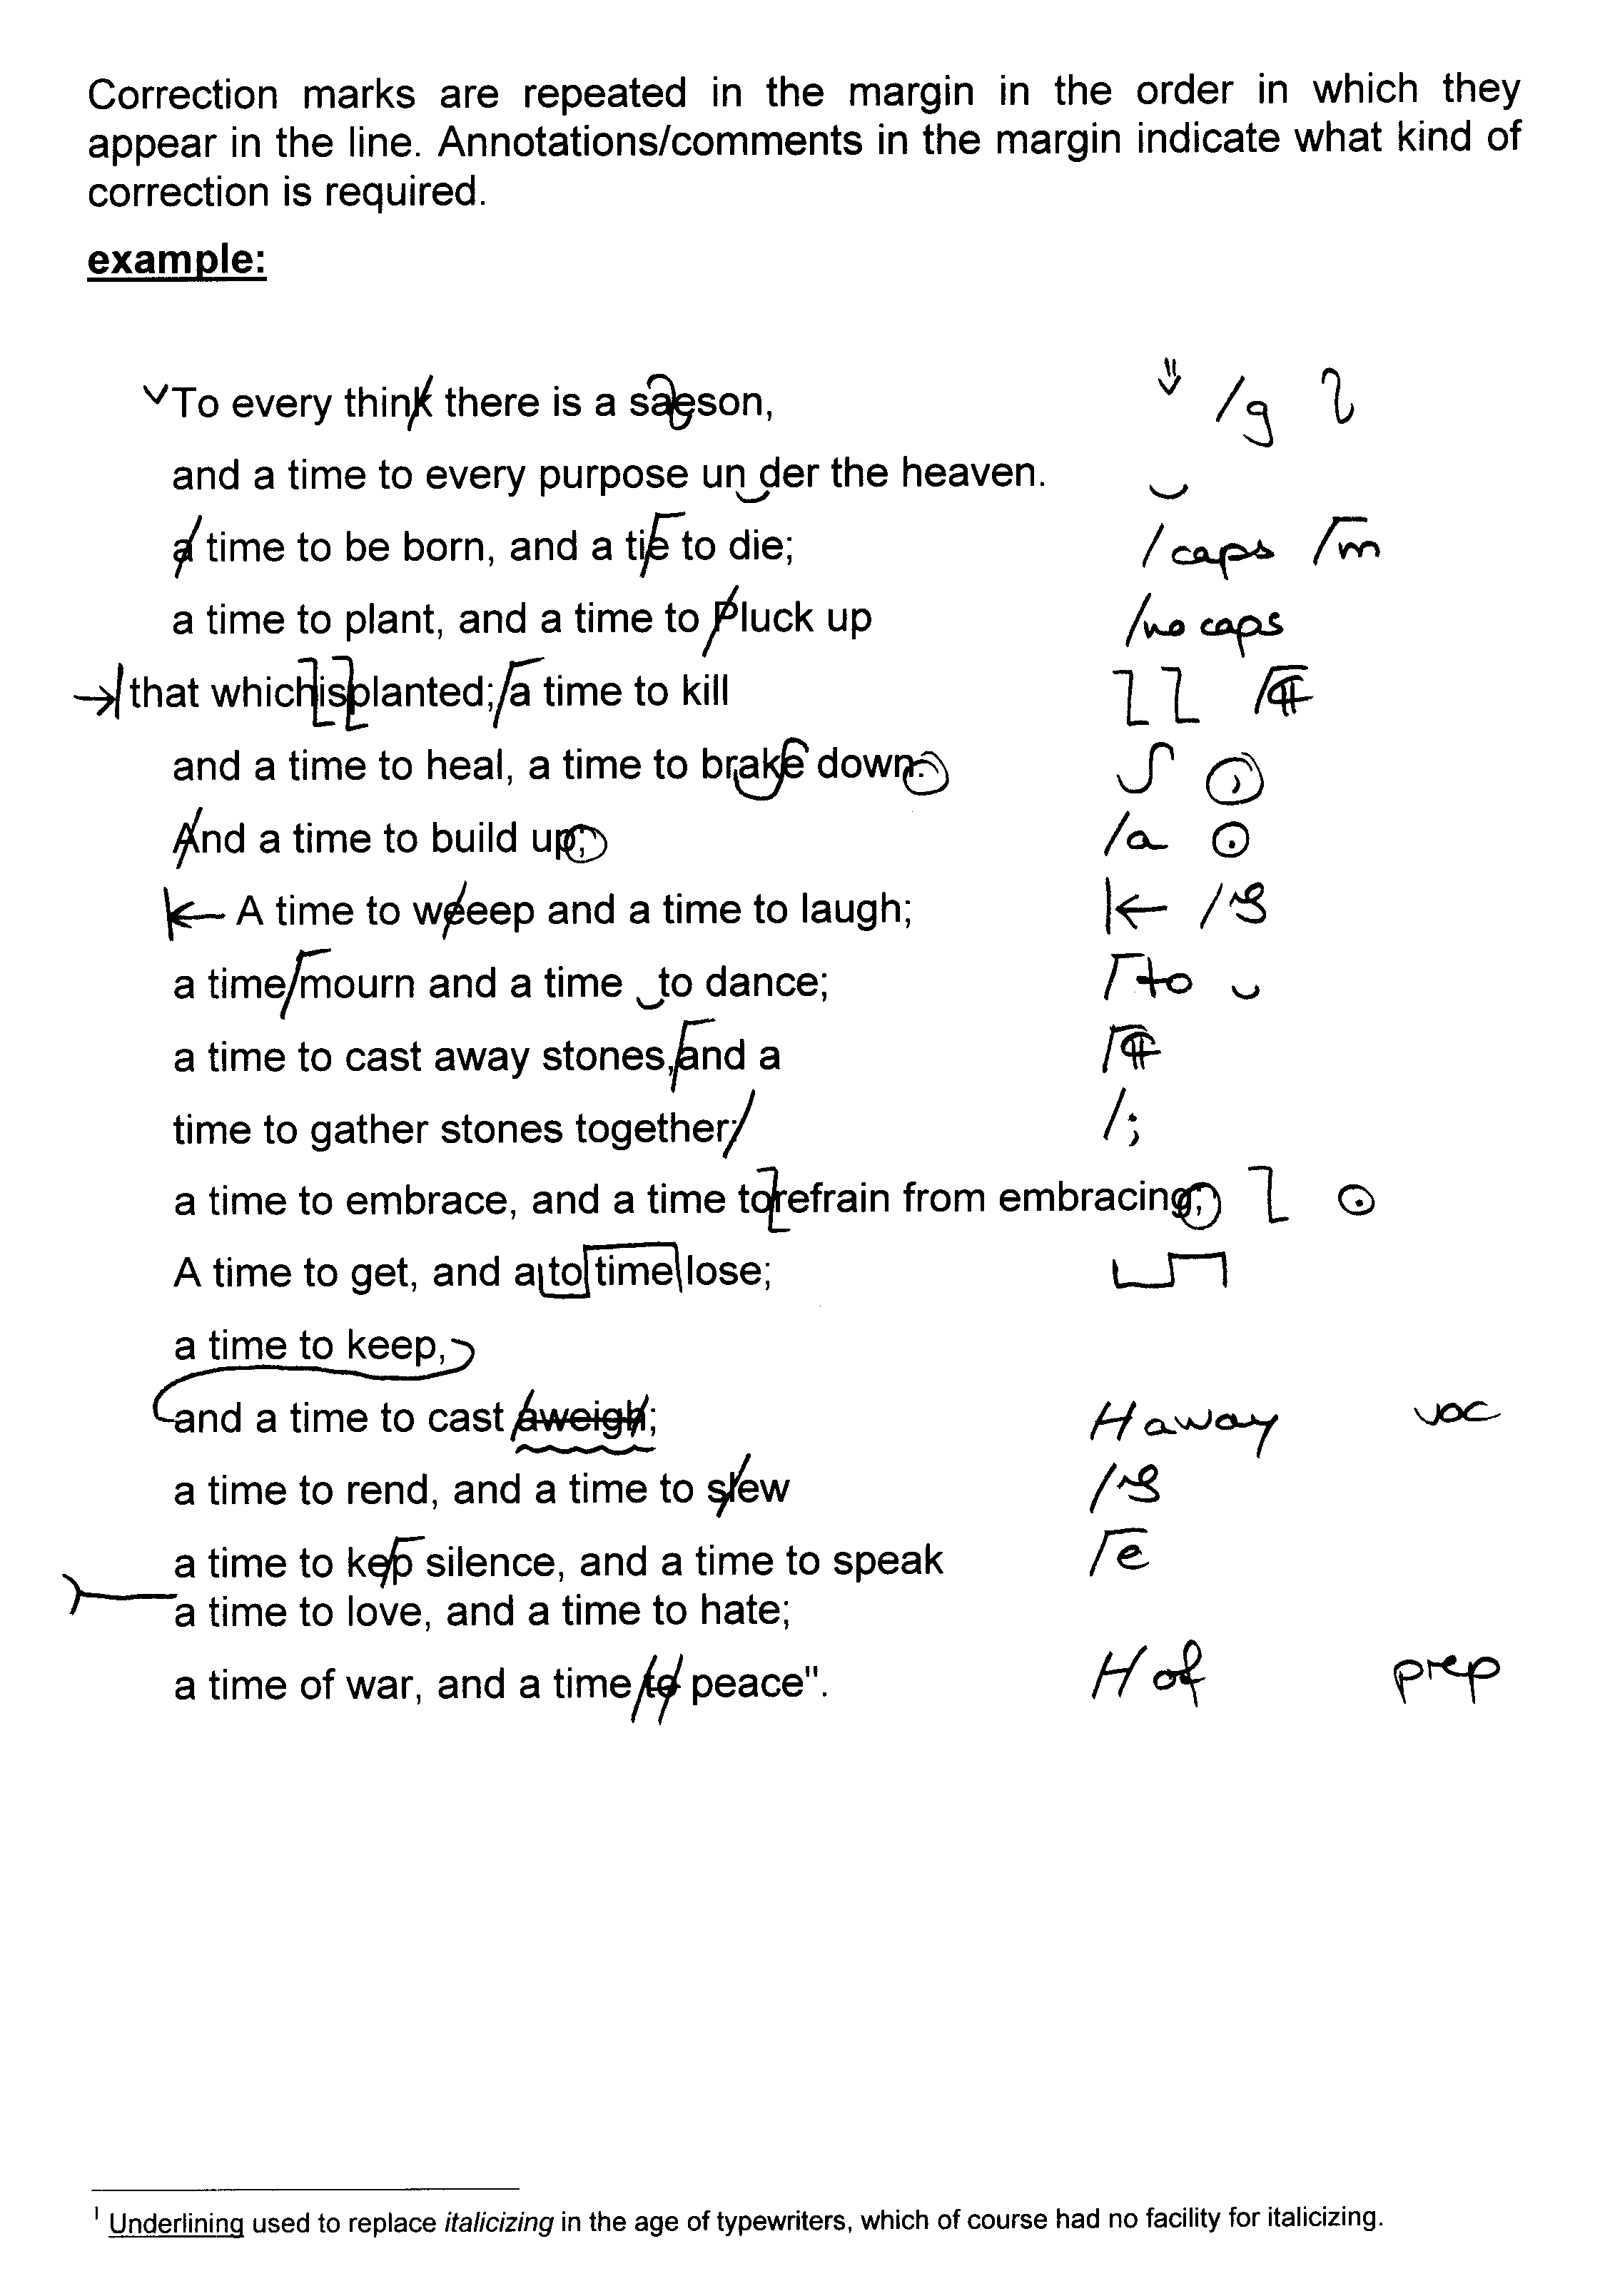 Correction marks are repeated in the margin in the order in which they
appear in the line. Annotations/comments in the margin indicate what kind of
correction is required.
example:
To every think there is a saeson, /g
and a time to every purpose un der the heaven.
a time to be born, and a tie to die; /caps /m
a time to plant, and a time to Pluck up /no caps
that whichisplanted; a time to kill
and a time to heal, a time to brake down. ,
And a time to build up; /a .
A time to weeep and a time to laugh;
a time mourn and a time to dance; to
a time to cast away stones, and a
time to gather stones together, /;
a time to embrace, and a time torefrain from embracing; .
A time to get, and a to time lose;
a time to keep,
and a time to cast aweigh; away voc
a time to rend, and a time to slew
a time to kep silence, and a time to speak e
a time to love, and a time to hate;
a time of war, and a time to peace". of prep
1 Underlining used to replace italicizing in the age of typewriters, which of course had no facility for italicizing.